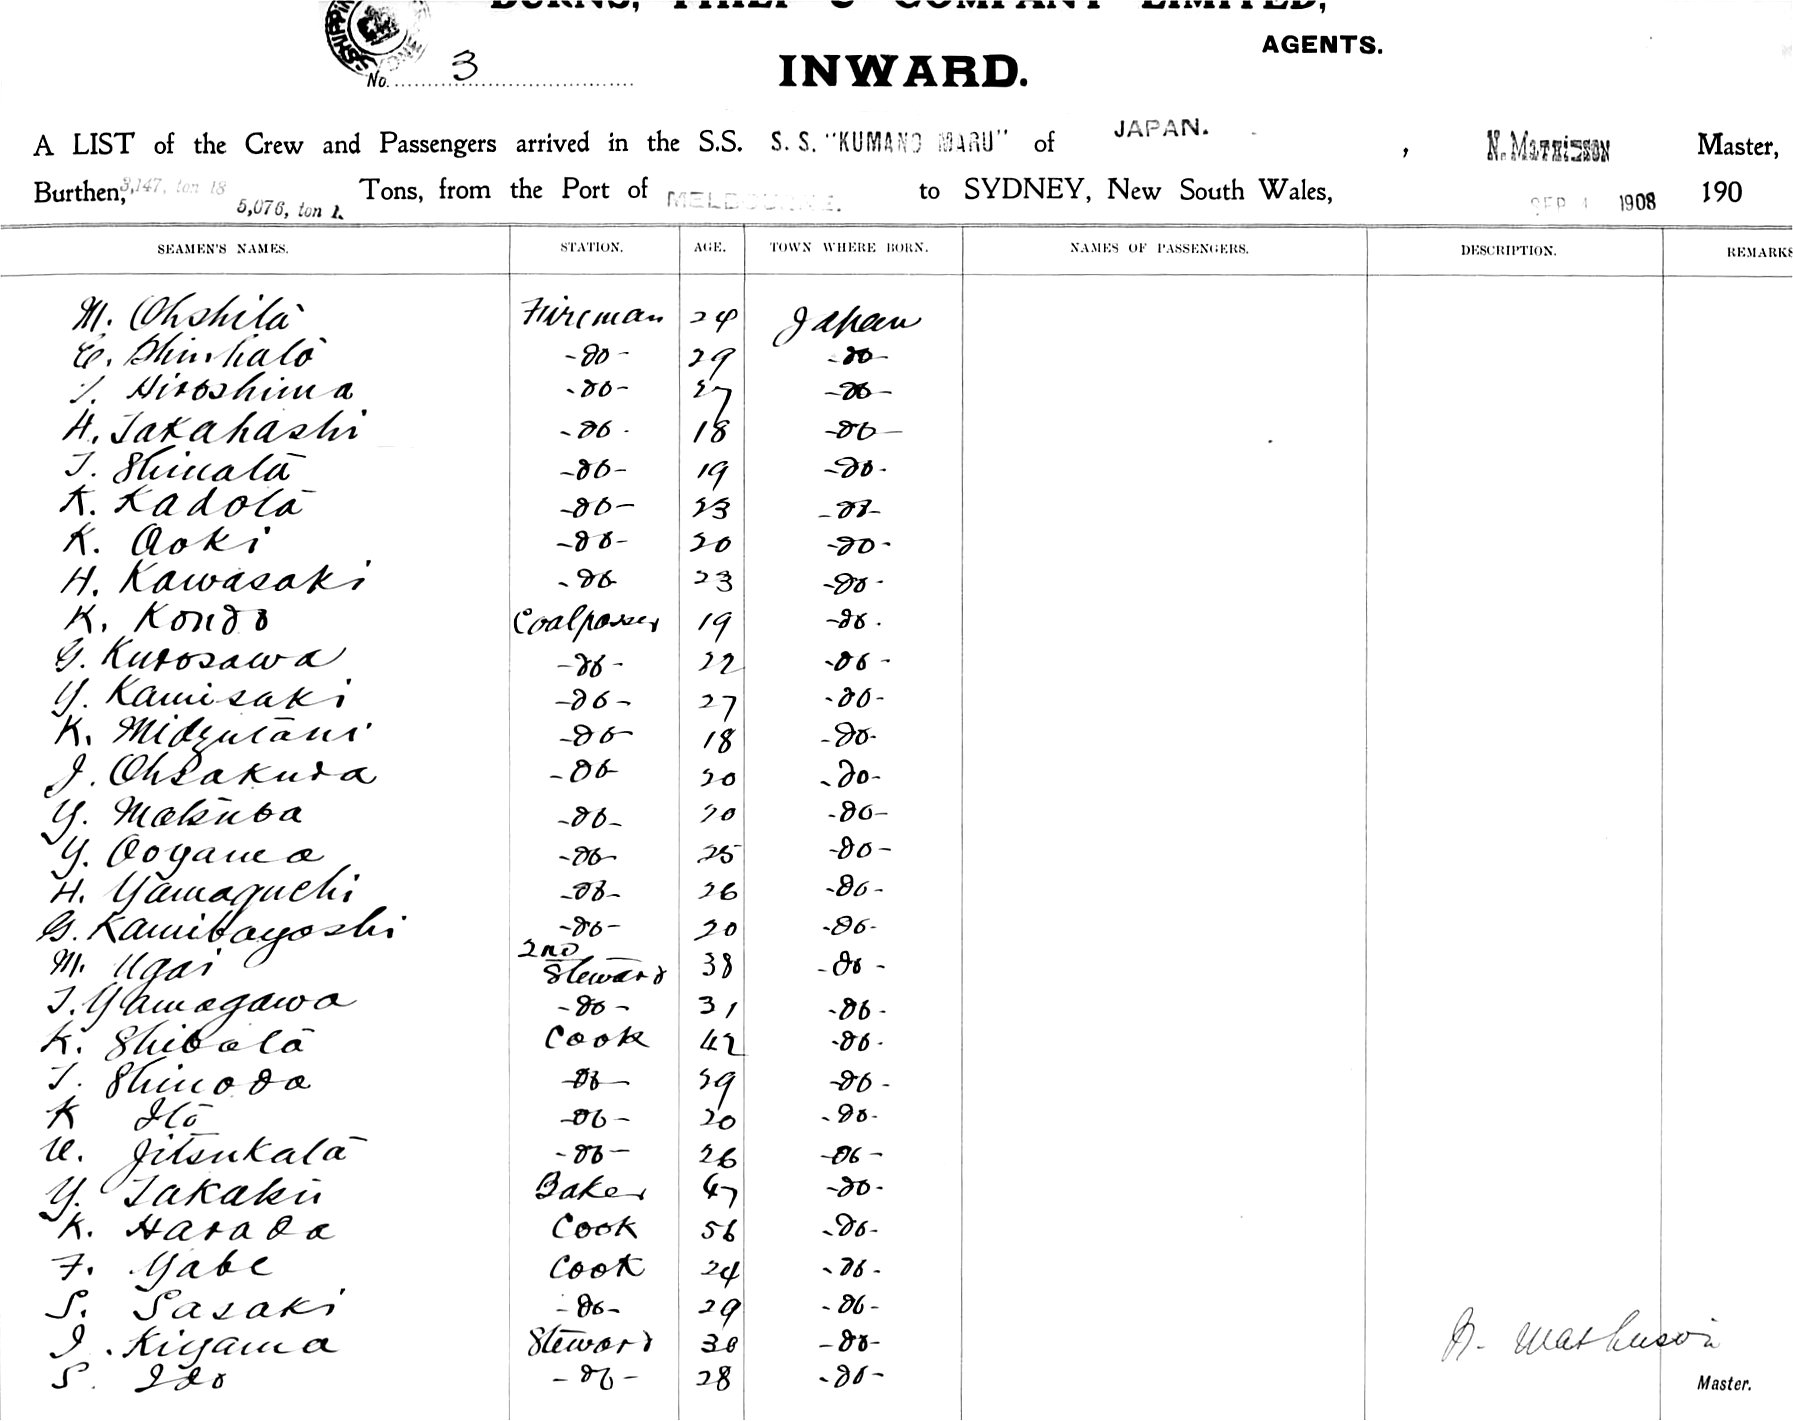 BURNS, PHILP & COMPANY LIMITED,
AGENTS.
SHIPPING
No. 3
INWARD.
A LIST of the Crew and Passengers arrived in the S.S. S. S. "KUMANO MARU" of JAPAN. , Master,
Burthen, 3,147, ton 18 5,076, ton 1. Tons, from the Port of MELBOURNE. to SYDNEY, New South Wales, SEP 1 1908 190
SEAMEN'S NAMES. STATION. AGE. TOWN WHERE BORN. NAMES OF PASSENGERS. DESCRIPTION. REMARKS
M. Ohshita Fireman 24 Japan
Shinkato -do- 29 -do-
Hiroshima -do- 27 -do-
H. Takahashi -do- 18 -do-
T. Shimata -do- 19 -do-
K. Kadota -do- 23 -do-
K. Aoki -do- 20 -do-
H. Kawasaki -do- 23 -do-
K. Kondo Coalpasser 19 -do-
G. Kurosawa -do- 22 -do-
Y. Kamisaki -do- 27 -do-
K. Midzutani -do- 18 -do-
J. Ohsakura -do- 20 -do-
Y. -do- 20 -do-
Y. Ooyama -do- 25 -do-
H. Yamaguchi -do- 26 -do-
G. Kamibayashi -do- 20 -do-
M. Ugai 2nd Steward 38 -do-
T. Yamagawa -do- 31 -do-
K. Shibata Cook 42 -do-
T. Shinoda -do- 29 -do-
K Ito -do- 20 -do-
U. Jitsukata -do- 26 -do-
Y. Takaku Baker 47 -do-
K. Harada Cook 56 -do-
F. Yabe Cook 24 -do-
S. Sasaki -do- 29 -do-
I. Kiyama Steward 30 -do-
S. Ido -do- 28 -do-
N. Mathieson
Master.